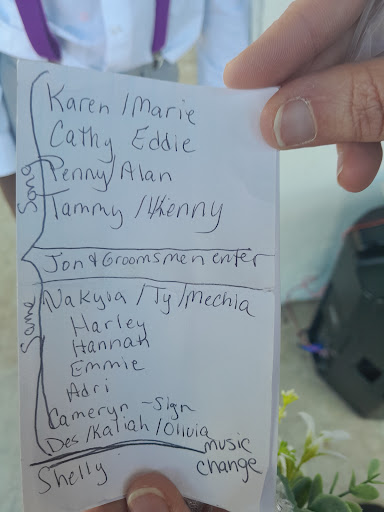 Karen / Marie
Cathy Eddie
Penny / Alan
Tammy / Kenny
Jon & Groomsmen enter
Same Song
Nakyia / Ty / Mechia
Harley
Hannah
Emmie
Adri
Cameryn - Sign
Des / Kaliah / Olivia
music change
Shelly